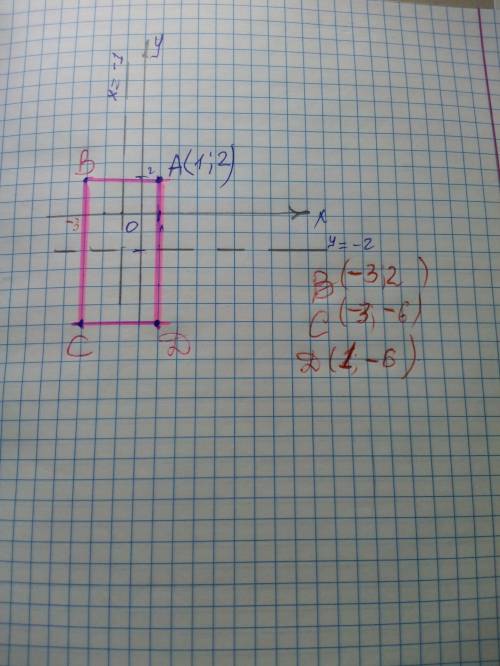 y
x = -1
B
A(1;2)
2
-3
0
x
y = -2
B(-3;2)
C(-3;-6)
C
D
D(1;-6)